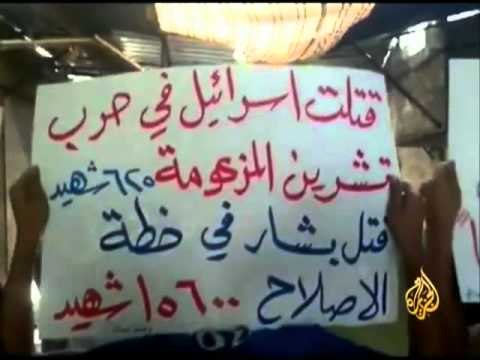 قتلت اسرائيل في حرب
تشرين المزعومة ٦٢٥ شهيد
قتل بشار في خطة
الاصلاح ١٥٦٠٠ شهيد
الجزيرة